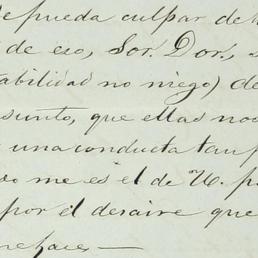 se pueda culpar de
de eso, Sor. Dor., s
tabilidad no niego) de
sunto, que ellas no
una conducta tan p
me es el de U. p
por el desaire que
hace —